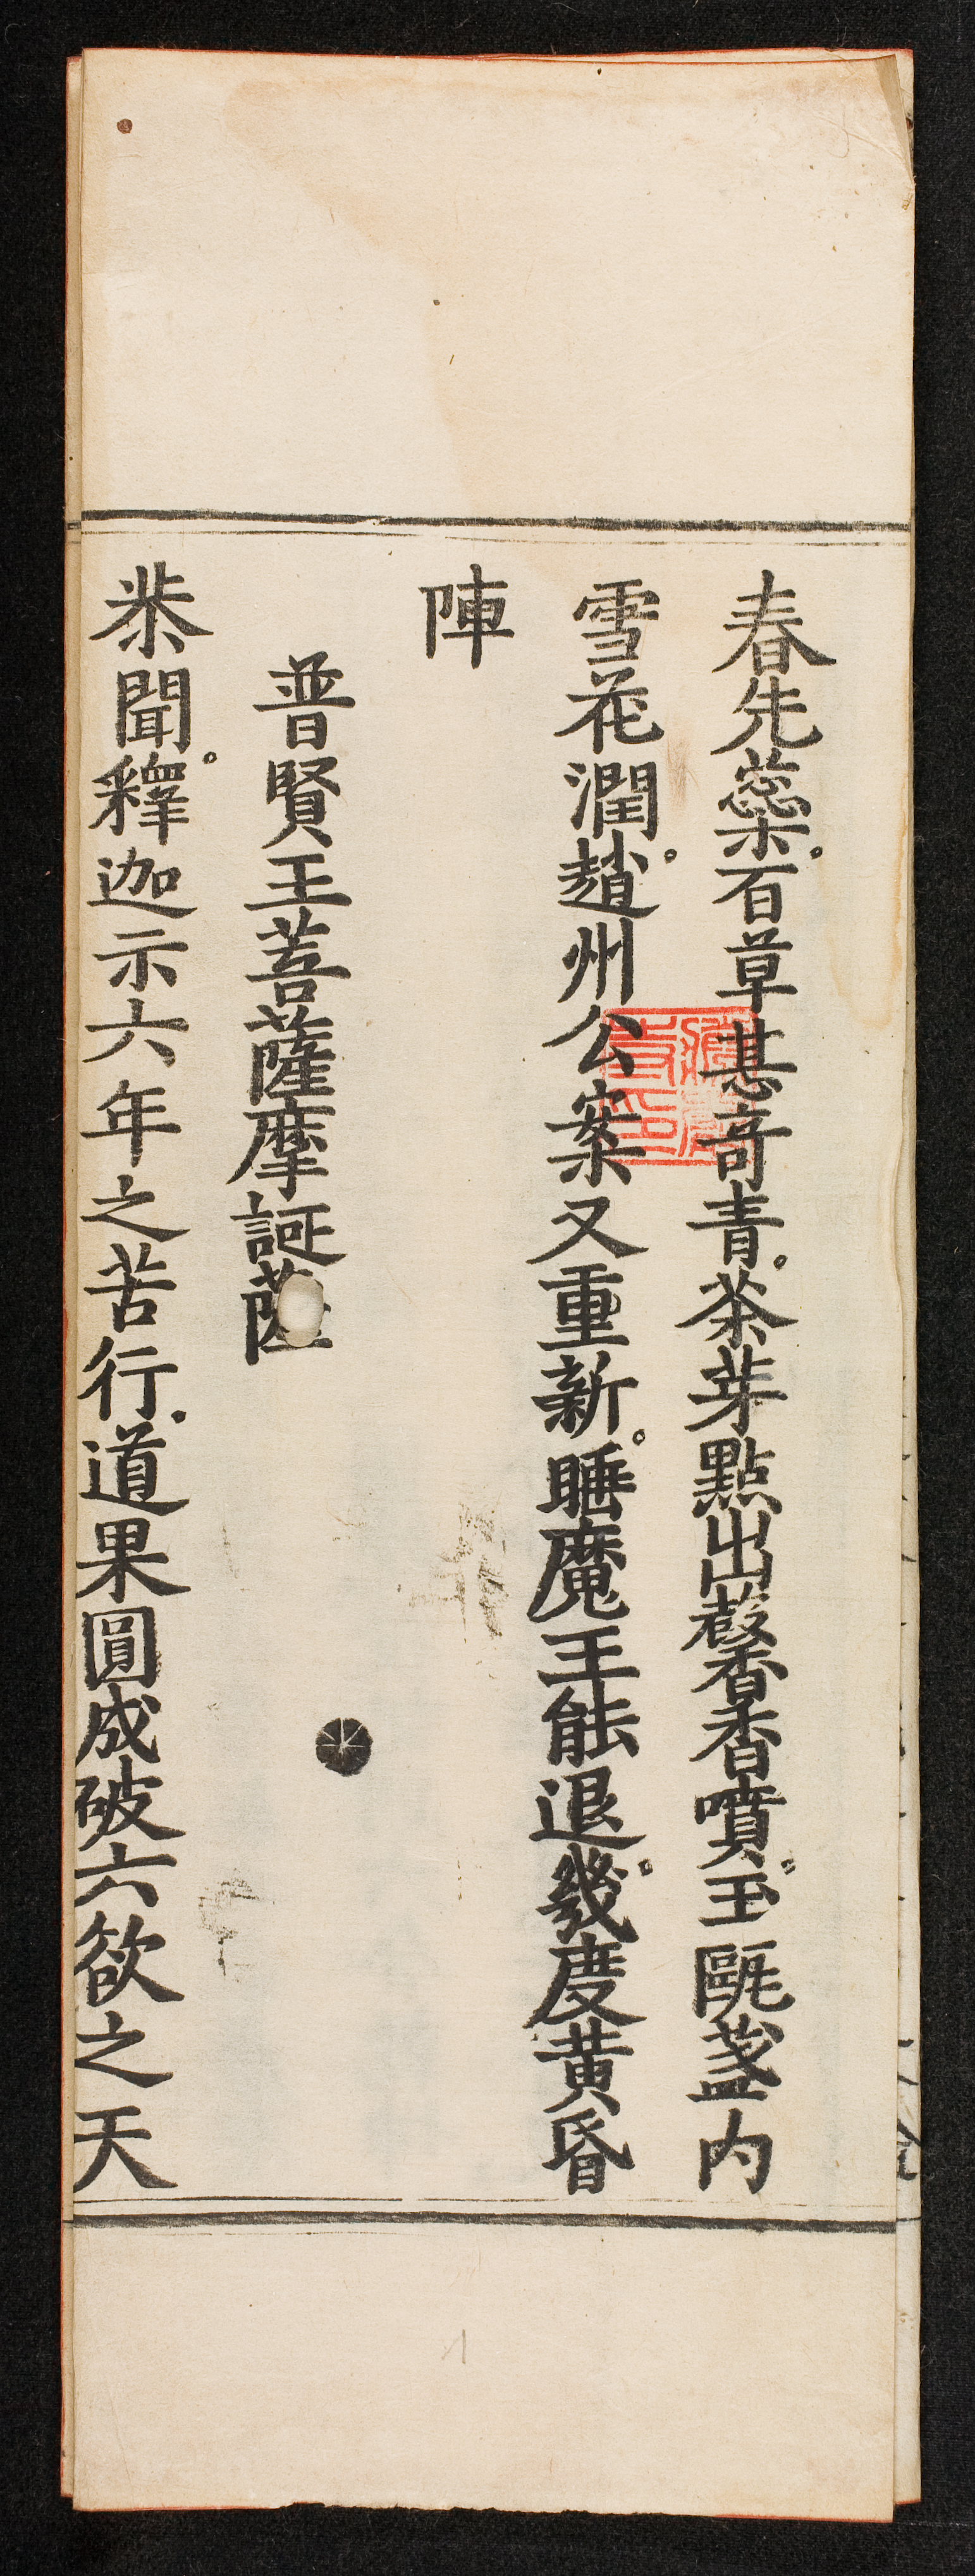 春先蘂百草甚竒青茶芽點出馨香噴玉甌盞内
雪花潤趙州公案又重新睡魔王能退幾度黄昏
陣
普賢王菩薩摩訶薩
㳟聞釋迦示六年之苦行道果圓成破六欲之天